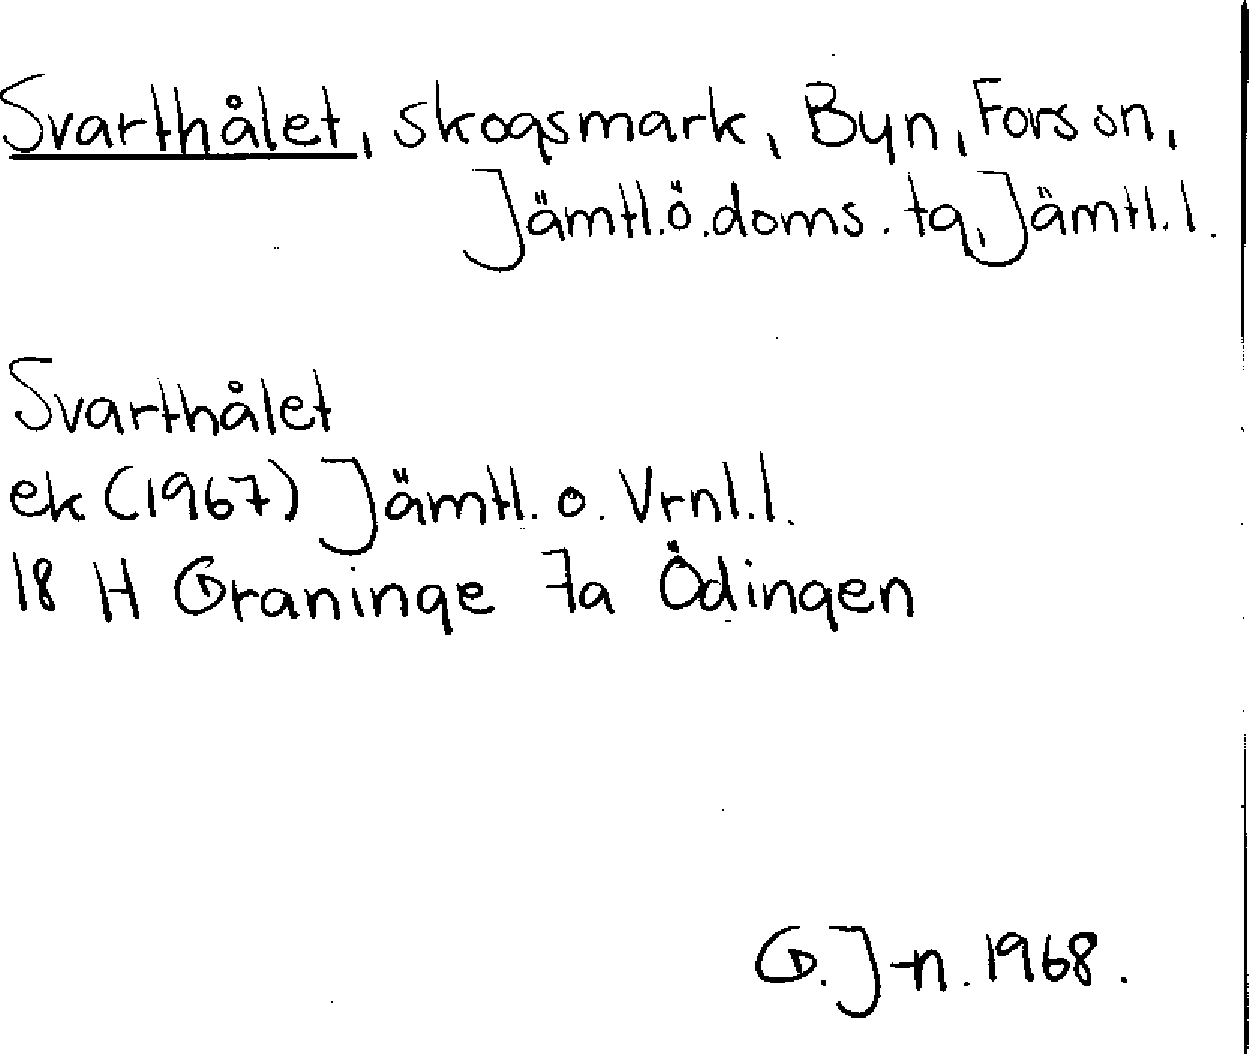 Svarthålet, skogsmark, Byn, Fors sn,
Jämtl.ö.doms.tg, Jämtl.l.
Svarthålet
ek (1967) Jämtl. o. Vrnl.l.
18 H Graninge 7a Ödingen
G. J-n. 1968.